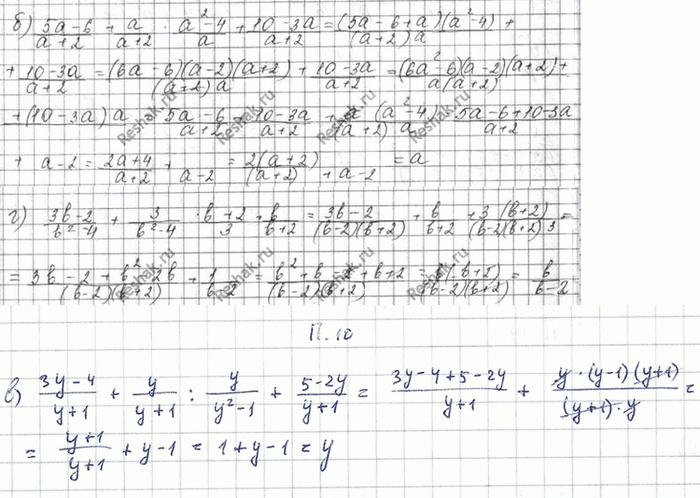 б) (5a-6)/(a+2) + a/(a+2) · (a²-4)/a + (10-3a)/(a+2) = (5a-6+a)(a²-4)/((a+2)a) +
+ (10-3a)/(a+2) = (6a-6)(a-2)(a+2)/((a+2)a) + (10-3a)/(a+2) = (6a²-6)(a-2)(a+2)+/(a(a+2))
+(10-3a)a (5a-6)/(a+2) + (10-3a)/(a+2) + a(a²-4)/((a+2)a) = (5a-6+10-3a)/(a+2)
+ a-2 = (2a+4)/(a+2) + a-2 = 2(a+2)/(a+2) + a-2 = a
г) (3b-2)/(b²-4) + 3/(b²-4) · (b+2)/3 + b/(b+2) = (3b-2)/((b-2)(b+2)) + b/(b+2) + 3(b+2)/((b-2)(b+2)3) =
= (3b-2+b²-2b)/((b-2)(b+2)) + 1/(b-2) = (b²+b-2+b+2)/((b-2)(b+2)) = b(b+2)/((b-2)(b+2)) = b/(b-2)
П.10
в) (3y-4)/(y+1) + y/(y+1) : y/(y²-1) + (5-2y)/(y+1) = (3y-4+5-2y)/(y+1) + y·(y-1)(y+1)/((y+1)·y) =
= (y+1)/(y+1) + y-1 = 1+y-1 = y
Reshak.ru
Reshak.ru
Reshak.ru
Reshak.ru
Reshak.ru
Reshak.ru